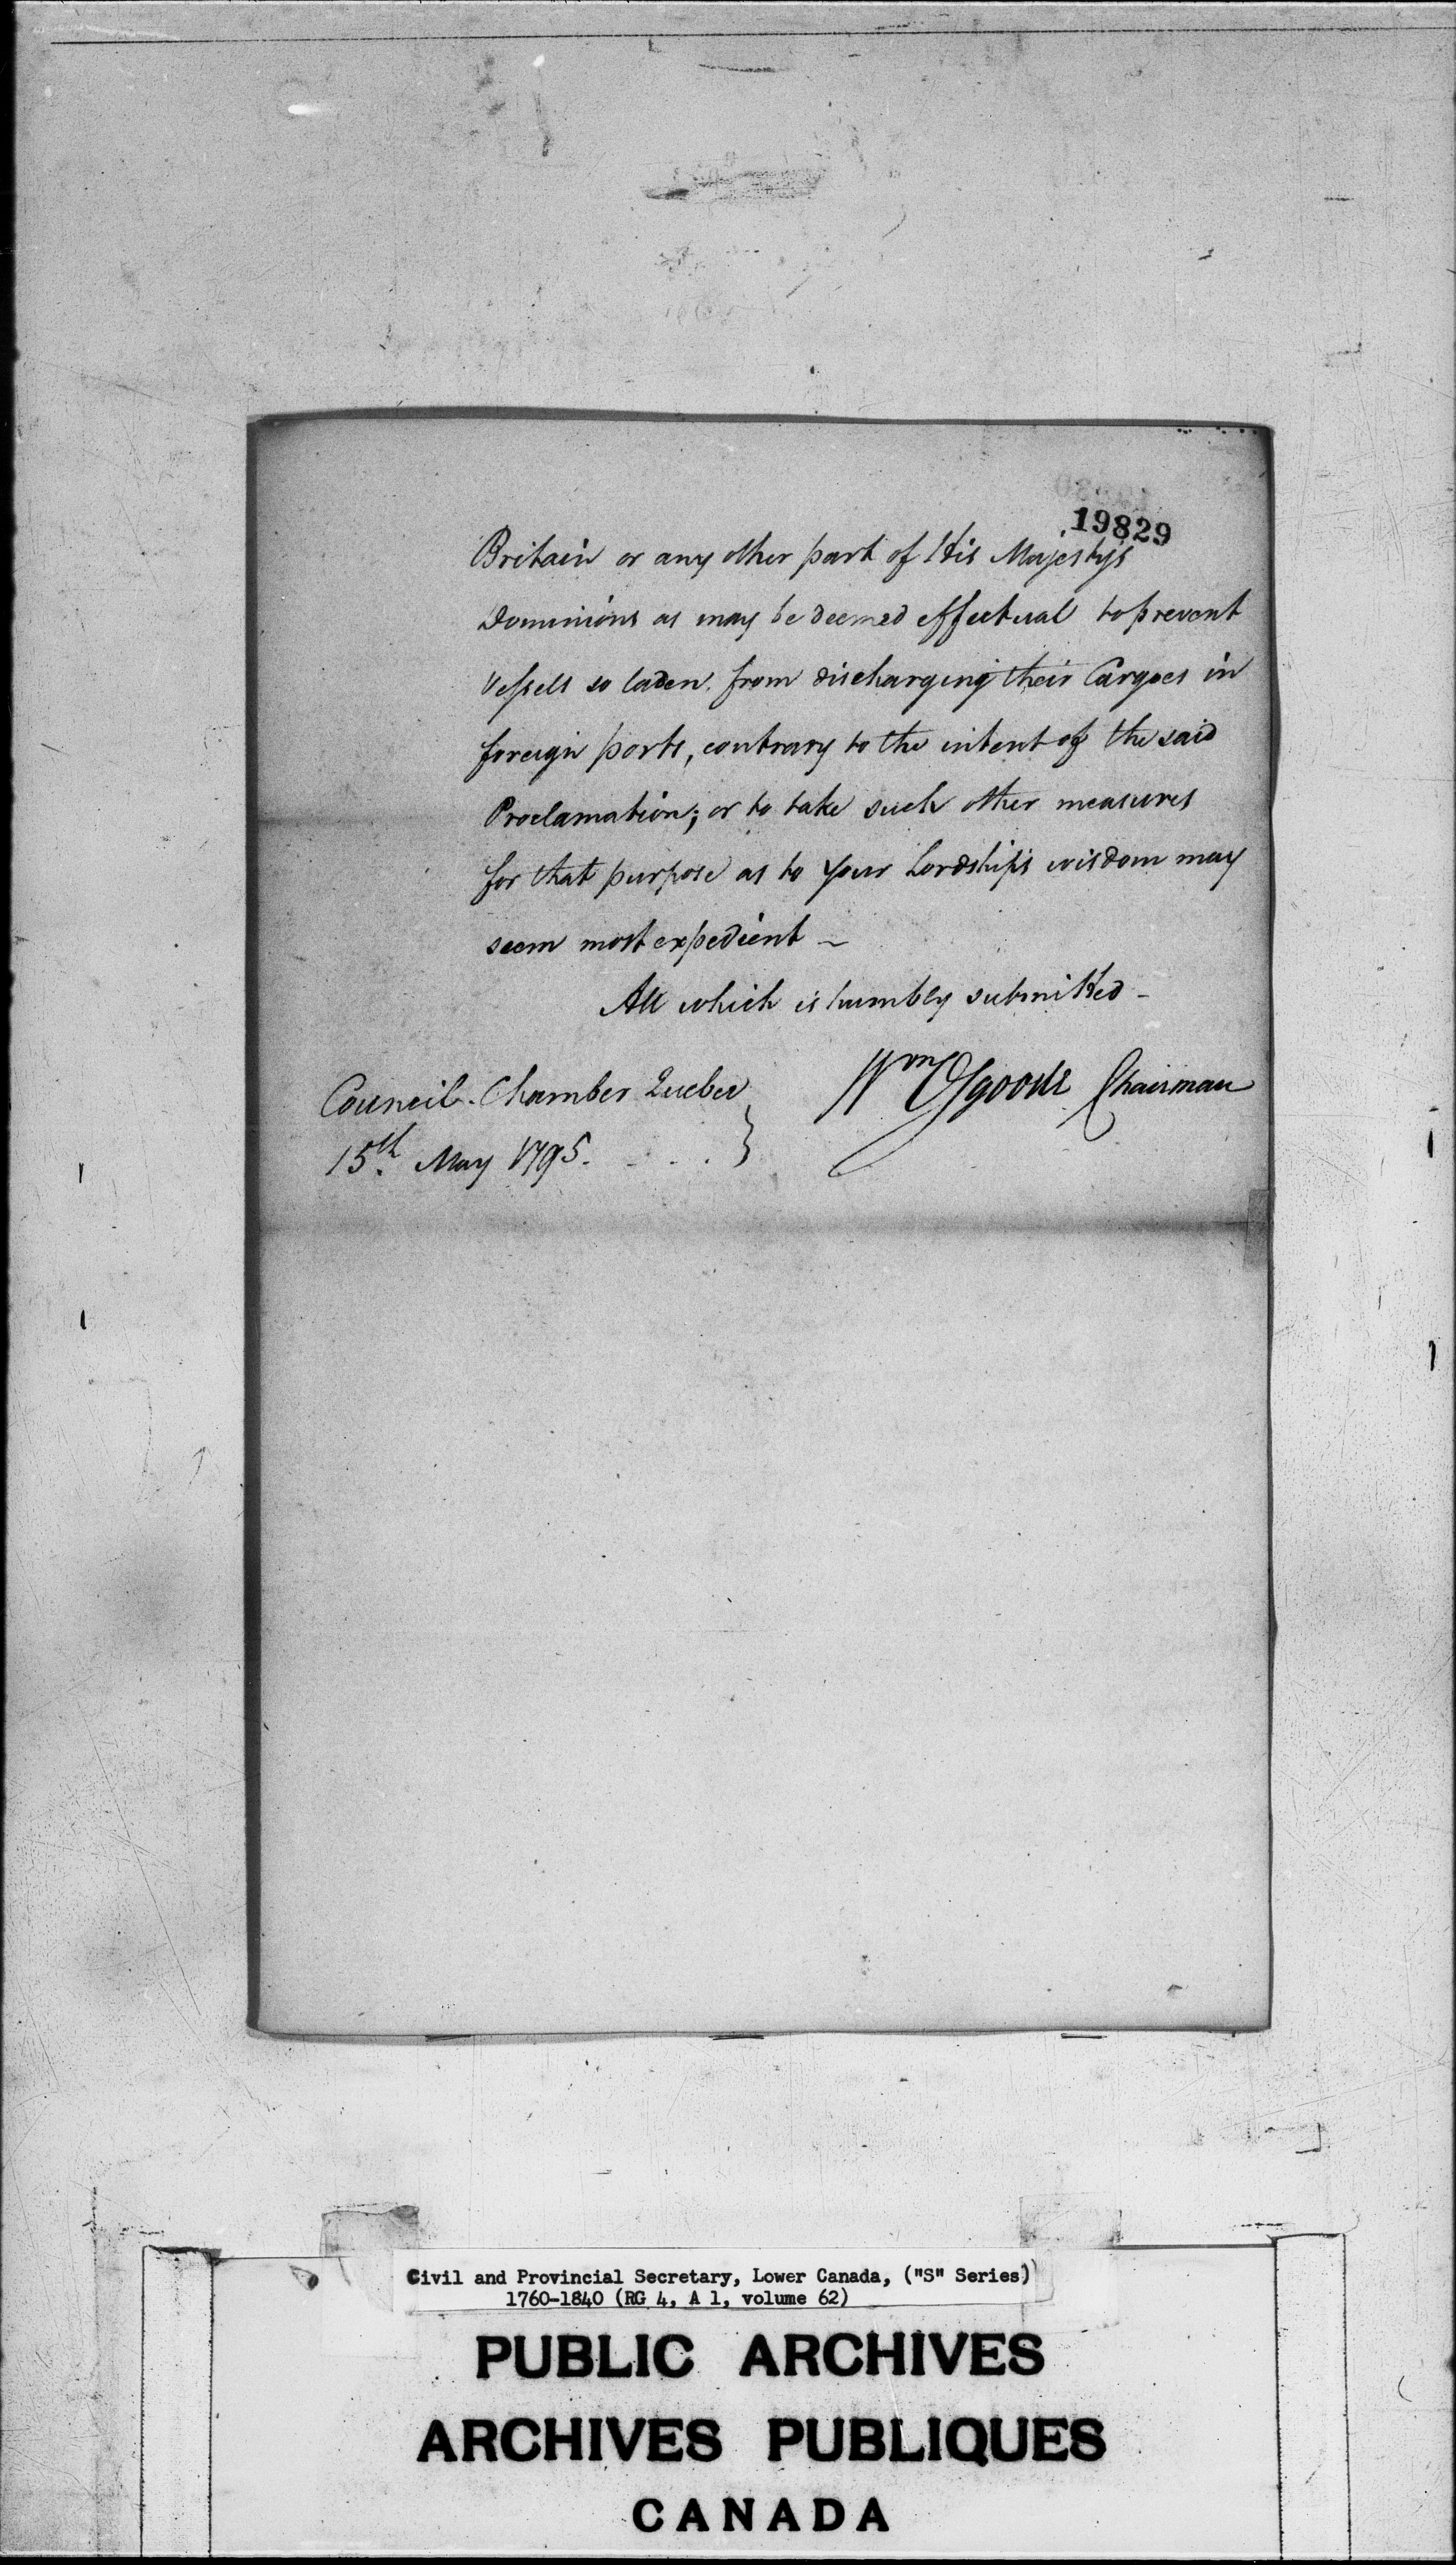 19829
Britain or any other part of His Majesty's
Dominions as may be deemed effectual to prevent
Vessels so laden from discharging their Cargoes in
foreign ports, contrary to the intent of the said
Proclamation; or to take such other measures
for that purpose as to Your Lordship's wisdom may
seem most expedient —
All which is humbly submitted —
Wm Osgoode Chairman
Council Chamber Quebec
15th May 1795. . . . }
Civil and Provincial Secretary, Lower Canada, ("S" Series)
1760-1840 (RG 4, A 1, volume 62)
PUBLIC ARCHIVES
ARCHIVES PUBLIQUES
CANADA